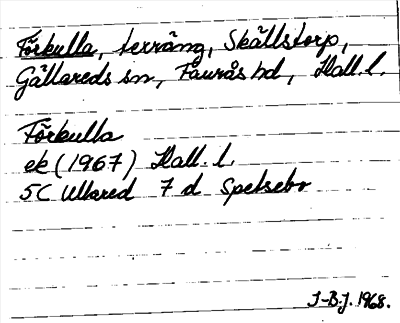 Förkulla, terräng, Skällstorp,
Gällareds sn, Faurås hd, Hall. l.
Förkulla
ek (1967) Hall. l.
5C Ullared 7 d Spetsebo
J-B.J. 1968.